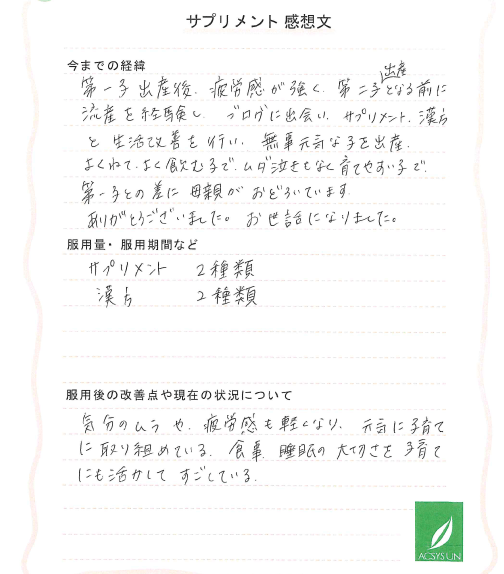 サプリメント 感想文
今までの経緯
第一子出産後、疲労感が強く、第二子出産となる前に
流産を経験し、ブログに出会い、サプリメント、漢方
と生活改善を行い、無事元気な子を出産。
よくねて、よく飲む子で、ムダ泣きもなく育てやすい子で、
第一子との差に母親がおどろいています。
ありがとうございました。お世話になりました。
服用量・服用期間など
サプリメント 2種類
漢方 2種類
服用後の改善点や現在の状況について
気分のムラや、疲労感も軽くなり、元気に子育て
に取り組めている。食事、睡眠の大切さを子育て
にも活かして すごしている。
ACSYSUN